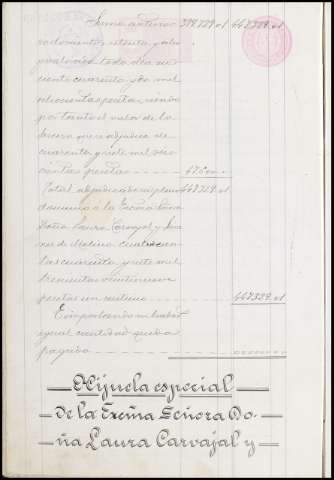 Suma anterior 399.729.01 447.329.01
dosientos setenta y ocho
y valorada toda ella en
ciento cuarenta y dos mil
ochocientas pesetas, siendo
por tanto el valor de la
tercera que se adjudica de
cuarenta y siete mil seis-
cientas pesetas 47.600
Total adjudicado en pleno 447.329.01
dominio á la Excma Seño-
Doña Laura Carvajal y
nez de Molina cuatrocien-
tas cuarenta y siete mil
trescientas veintinueve
pesetas un céntimo 447.329.01
É importando su haber
igual cantidad queda
pagada
Hijuela especial
de la Excma Señora Do-
ña Laura Carvajal y